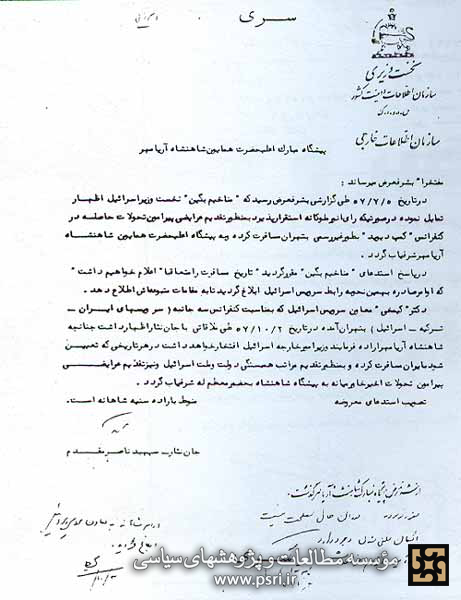 سری
نخست وزیری
سازمان اطلاعات و امنیت کشور
سازمان اطلاعات خارجی
پیشگاه مبارک اعلیحضرت همایون شاهنشاه آریامهر
مفتخرا" بشرفعرض میرساند :
در تاریخ ۵۷/۷/۵ طی گزارشی بشرفعرض رسید که "مناخیم بگین" نخست وزیر اسرائیل اظهار
تمایل نموده در صورتیکه رای انور ملوکانه استقرار پذیرد بمنظور تقدیم عرایضی پیرامون تحولات حاصله در
کنفرانس "کمپ دیوید" بطور غیر رسمی بتهران مسافرت کرده و به پیشگاه اعلیحضرت همایون شاهنشاه
آریامهر شرفیاب گردد .
در پاسخ استدعای "مناخیم بگین" مقرر گردید "تاریخ مسافرت را متعاقبا" اعلام خواهیم داشت"
که اوامر صادره بهمین نحو به رابط سرویس اسرائیل ابلاغ گردید تا به مقامات متبوعه‌اش اطلاع دهد .
دکتر "کیمخی" معاون سرویس اسرائیل که بمناسبت کنفرانس سه جانبه ( سرویسهای ایران -
ترکیه - اسرائیل ) بتهران آمده در تاریخ ۵۷/۱۰/۲ طی ملاقاتی با جان نثار اظهار داشت چنانچه
شاهنشاه آریامهر اراده فرمایند وزیر امور خارجه اسرائیل افتخار خواهد داشت در هر تاریخی که تعیین
شود بایران مسافرت کرده و بمنظور تقدیم مراتب همبستگی دولت و ملت اسرائیل و نیز تقدیم عرایضی
پیرامون تحولات اخیر خاورمیانه به پیشگاه شاهنشاه بحضور معظم له شرفیاب گردد .
تصویب استدعای معروضه منوط باراده سنیه شاهانه است.
جان نثار سپهبد ناصر مقدم
از شرفعرض پیشگاه مبارک شاهنشاه آریامهر گذشت.
مؤسسه مطالعات و پژوهشهای سیاسی
www.psri.ir